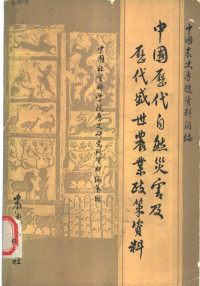 中国农史专题资料汇编
中国历代自然灾害及
历代盛世农业政策资料
中国社会科学院历史研究所资料编纂组
农业出版社